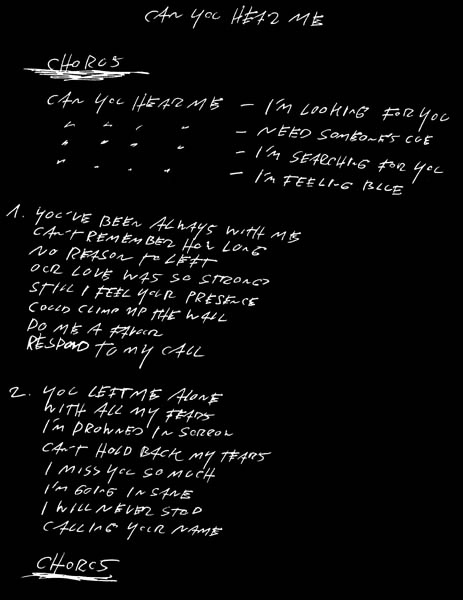 CAN YOU HEAR ME
CHORUS
CAN YOU HEAR ME - I'M LOOKING FOR YOU
" " " " - NEED SOMEONE'S CUE
" " " " - I'M SEARCHING FOR YOU
" " " " - I'M FEELING BLUE
1. YOU'VE BEEN ALWAYS WITH ME
CAN'T REMEMBER HOW LONG
NO REASON TO LEFT
OUR LOVE WAS SO STRONG
STILL I FEEL YOUR PRESENCE
COULD CLIMB UP THE WALL
DO ME A FAVOUR
RESPOND TO MY CALL
2. YOU LEFT ME ALONE
WITH ALL MY FEARS
I'M DROWNED IN SORROW
CAN'T HOLD BACK MY TEARS
I MISS YOU SO MUCH
I'M GOING INSANE
I WILL NEVER STOP
CALLING YOUR NAME
CHORUS